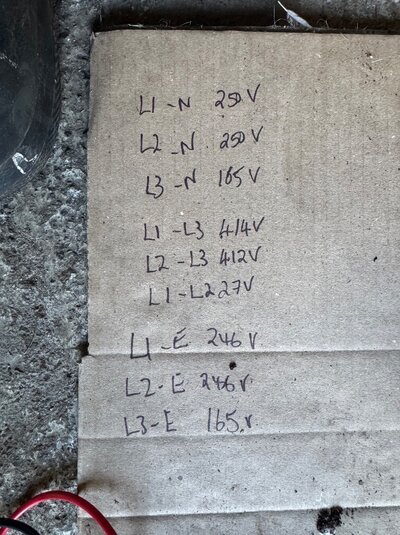 L1 - N 250V
L2 - N 250V
L3 - N 165V
L1 - L3 414V
L2 - L3 412V
L1 - L2 27V
L1 - E 246V
L2 - E 246V
L3 - E 165.V